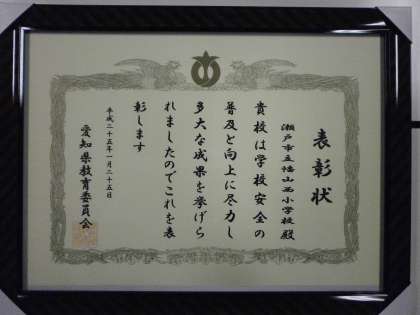 表彰状
瀬戸市立幡山西小学校 殿
貴校は学校安全の
普及と向上に尽力し
多大な成果を挙げら
れましたのでこれを表
彰します
平成二十五年一月二十五日
愛知県教育委員会